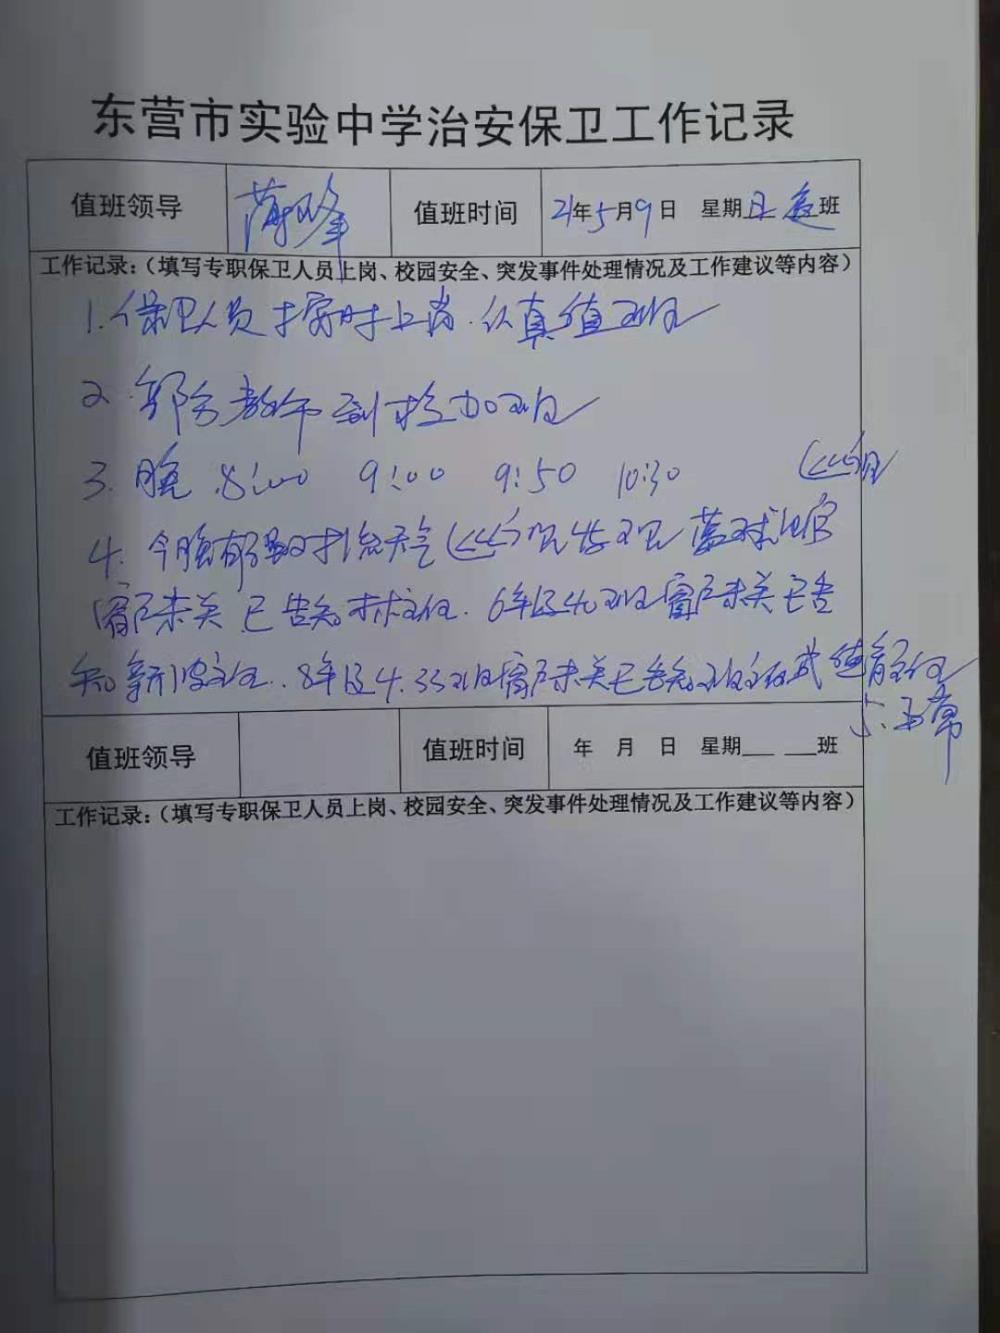 东营市实验中学治安保卫工作记录
值班领导 值班时间 21年5月9日 星期日 夜班
工作记录:(填写专职保卫人员上岗、校园安全、突发事件处理情况及工作建议等内容)
1.保卫人员按时上岗.认真值班
2.部分教师到校加班
3.晚 8:00 9:00 9:50 10:30 巡查
4.今晚有强对流天气 巡 发现 篮球馆
窗户未关 已告知 主任.6年级40班窗户未关已告
知 主任..8年级4.33班窗户未关已告知班主任或德育主任
5.正常
值班领导 值班时间 年 月 日 星期___ ___班
工作记录:(填写专职保卫人员上岗、校园安全、突发事件处理情况及工作建议等内容)